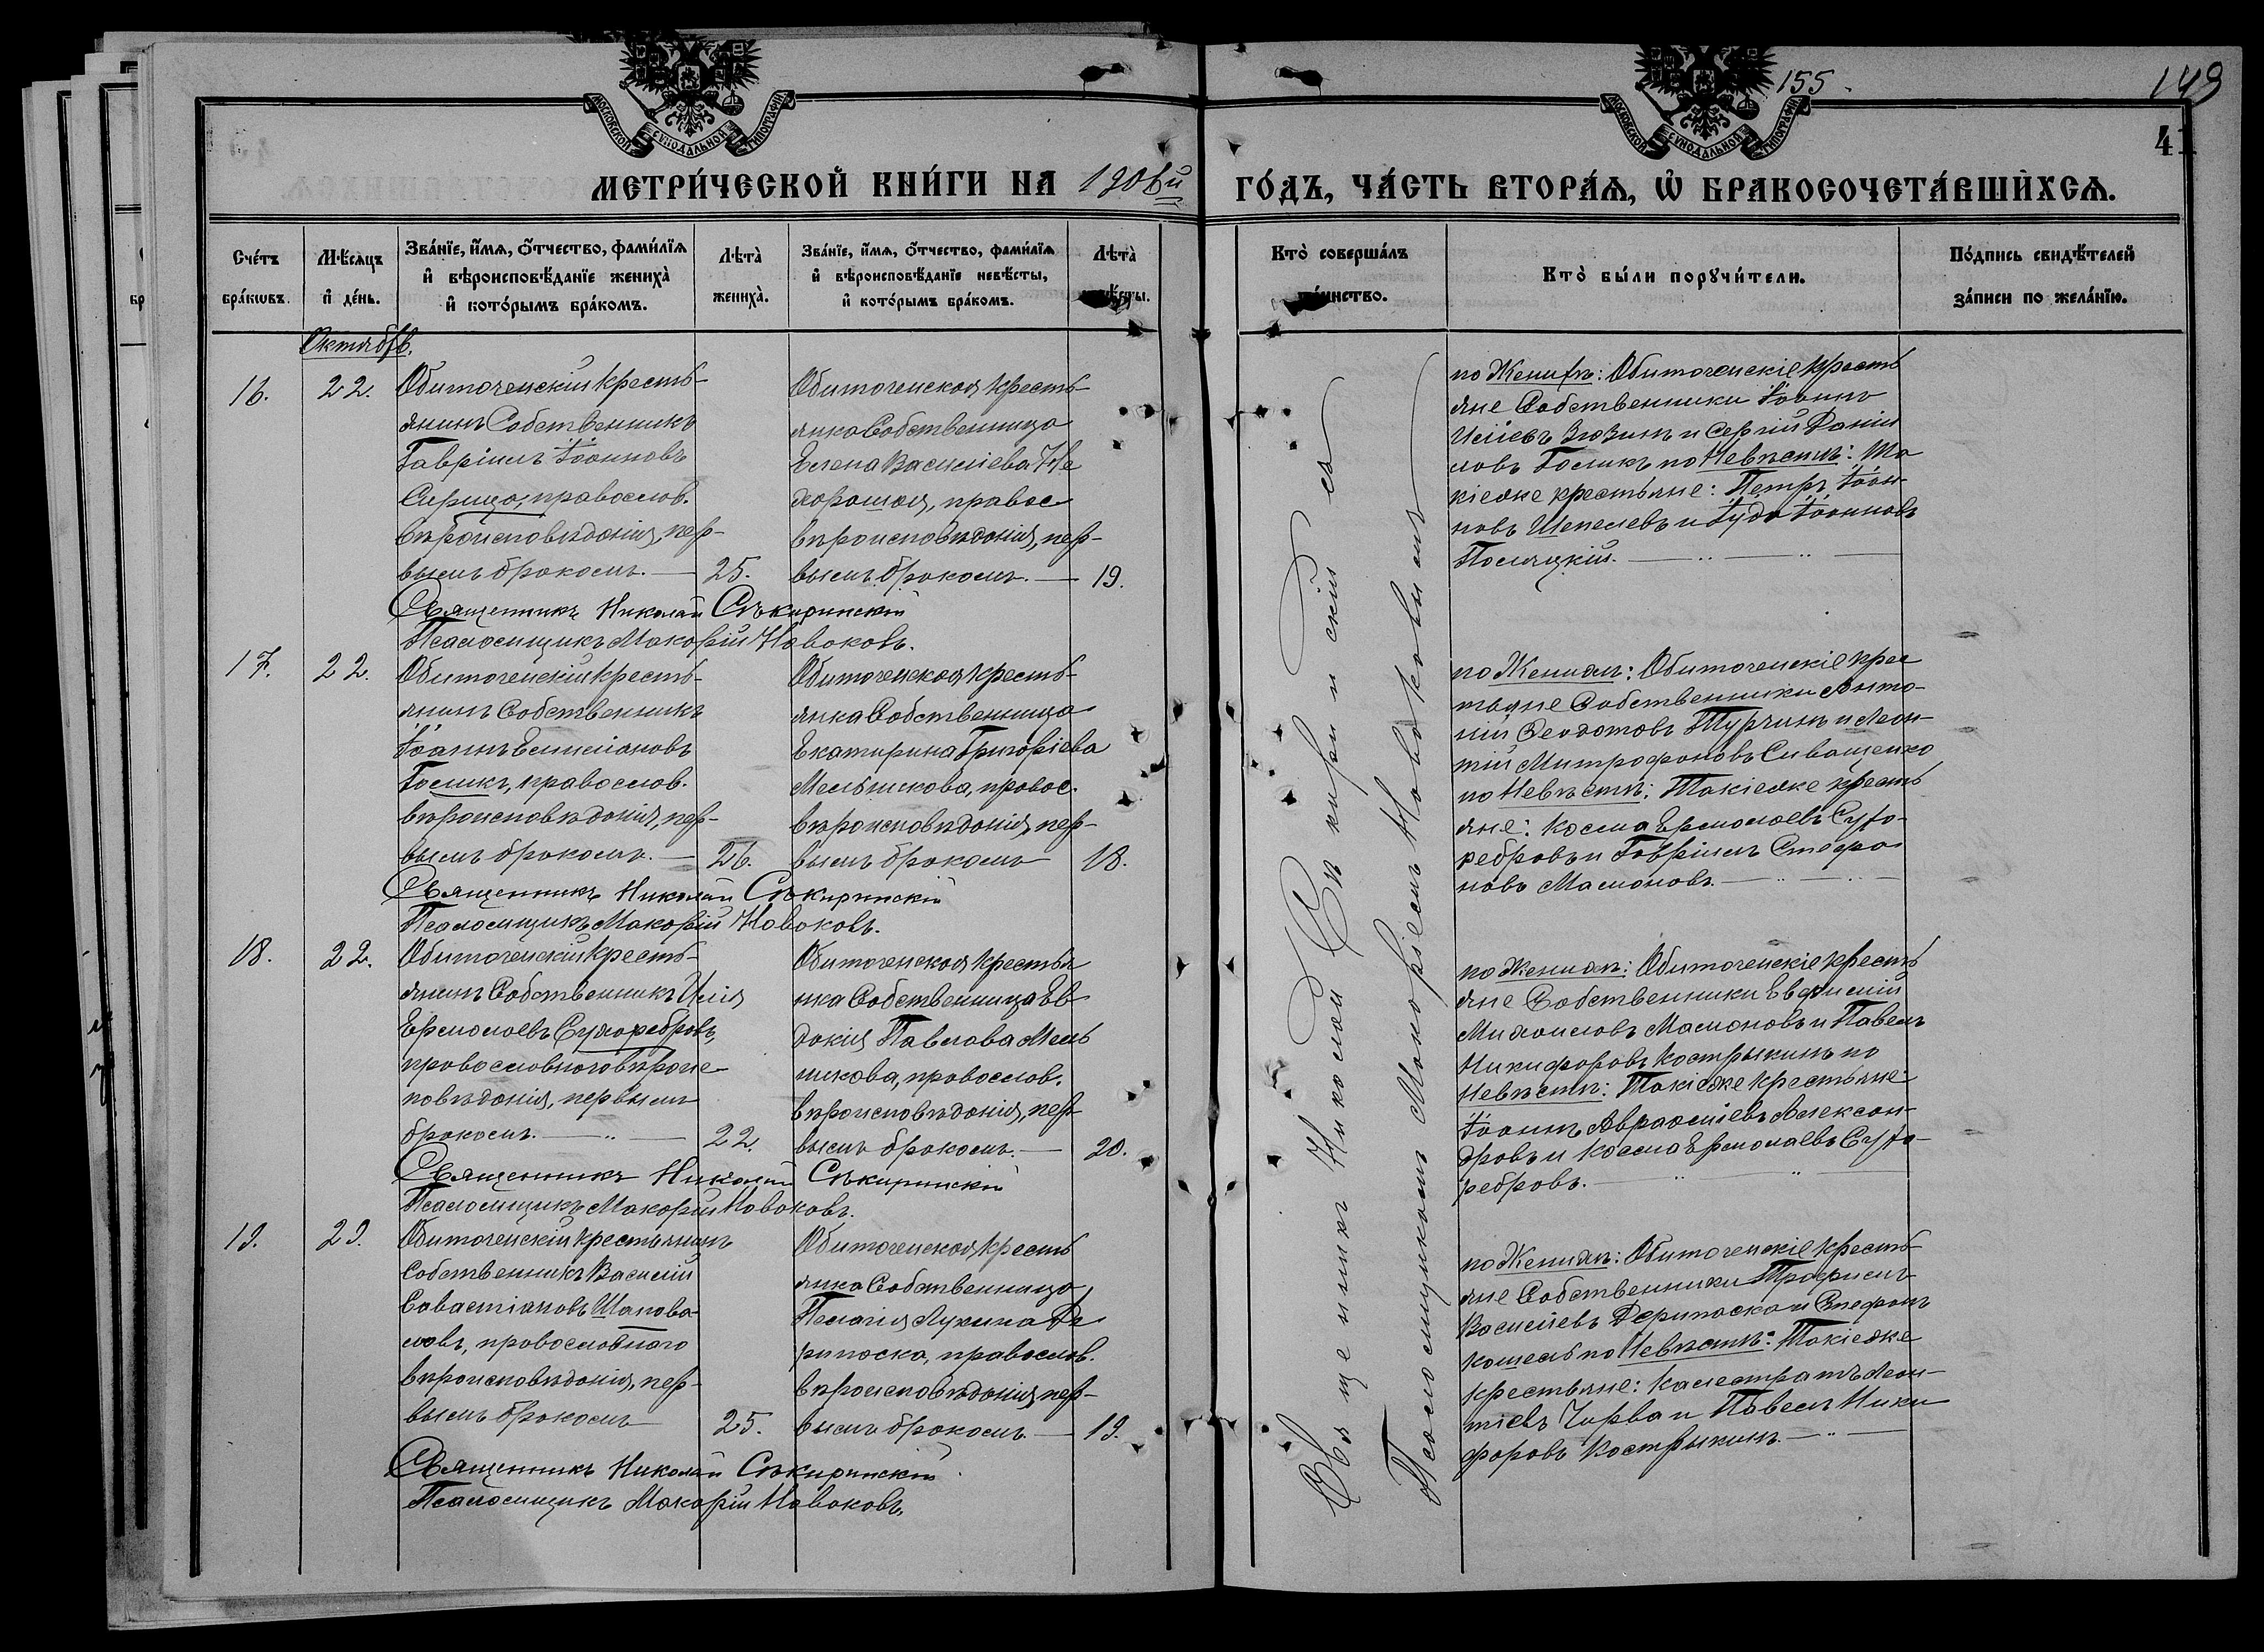 155.
149
41
МОСКОВСКОЙ СѴНОДАЛЬНОЙ ТИПОГРАФІИ
МОСКОВСКОЙ СѴНОДАЛЬНОЙ ТИПОГРАФІИ
МЕТРИ́ЧЕСКОЙ КНИ́ГИ НА 1906й ГО́ДЪ, ЧА́СТЬ ВТОРА́Ѧ, Ѡ БРАКОСОЧЕТА́ВШИХСѦ.
Сче́тъ бра́кѡвъ.
Мѣ́сѧцъ и де́нь.
Зва́нїе, и́мѧ, о́тчество, фами́лїѧ
и вѣроисповѣ́данїе жениха̀
и кото́рымъ бра́комъ.
Лѣта̀ жениха̀.
Зва́нїе, и́мѧ, о́тчество, фами́лїѧ
и вѣроисповѣ́данїе невѣ́сты,
и кото́рымъ бра́комъ.
Лѣта̀
Кто̀ соверша́лъ та́инство.
Кто̀ бы́ли порꙋчи́тели.
По́дпись свидѣ́телей
за́писи по жела́нїю.
Октябрь.
16.
22.
Обиточенскій кресть-
янинъ Собственникъ
Гавріилъ Іоанновъ
Сирица, православ.
вѣроисповѣданія, пер-
вымъ бракомъ.
25.
Обиточенская кресть-
янка Собственница
Елена Василіева Не
хорошая, правос
вѣроисповѣданія, пер-
вымъ бракомъ.
19.
по Женихѣ: Обиточенскіе кресть
яне Собственники Іоаннъ
Иліевъ Зюзинъ и Сергій Даніи
ловъ Голикъ по Невѣстѣ: Та
кіеже крестьяне: Петръ Іоан-
новъ Шепелевъ и Іуда Іоанновъ
Полицкій.
Священникъ Николай Сѣкиринскій
Псаломщикъ Макарій Новаковъ.
17.
22.
Обиточенскій кресть-
янинъ Собственникъ
Іоаннъ Емиліановъ
Голикъ, православ.
вѣроисповѣданія, пер-
вымъ бракомъ.
26.
Обиточенская кресть-
янка Собственница
Екатирина Григоріева
Мельникова, правос.
вѣроисповѣданія, пер-
вымъ бракомъ
18.
по Женихѣ: Обиточенскіе крес
тьяне Собственники Анто-
ній Феодотовъ Турчинъ и Леон-
тій Митрофановъ Сиващенко
по Невѣстѣ: Такіеже кресть
яне: Косма Ермолаевъ Сухо-
ребровъ и Гавріилъ Стефа
новъ Мамоновъ.
Священникъ Николай Сѣкиринскій
Псаломщикъ Макарій Новаковъ.
18.
22.
Обиточенскій кресть-
янинъ Собственникъ Илія
Ермолаевъ Сухоребровъ,
православнаго вѣроис
повѣданія, первымъ
бракомъ.
22.
Обиточенская крестья
нка Собственница Ев
докія Павлова Мель
никова, православ.
вѣроисповѣданія, пер
вымъ бракомъ.
20.
по Женихѣ: Обиточенскіе кресть
яне Собственники Евфимій
Михаиловъ Мамоновъ и Павелъ
Никифоровъ Кострыкинъ по
Невѣстѣ: Такіеже крестьяне:
Іоаннъ Аврааміевъ Алексан-
дровъ и Косма Ермолаевъ Сухо-
ребровъ.
Священникъ Николай Сѣкиринскій
Псаломщикъ Макарій Новаковъ.
19.
29.
Обиточенскій крестьянинъ
Собственникъ Василій
Савастіановъ Шапова-
ловъ, православнаго
вѣроисповѣданія, пер-
вымъ бракомъ
25.
Обиточенская кресть
янка Собственница
Пелагія Лукина Де
рипаска, православ.
вѣроисповѣданія, пер-
вымъ бракомъ.
19.
по Женихѣ: Обиточенскіе кресть
яне Собственники Трофимъ
Василіевъ Дерипаска и Стефанъ
Кошель по Невѣстѣ: Такіеже
крестьяне: Калистратъ Леон-
тіевъ Чирва и Павелъ Ники
форовъ Кострыкинъ.
Священникъ Николай Сѣкиринскій
Псаломщикъ Макарій Новаковъ.
Священникъ Николай Сѣкиринскій съ
Псаломщикомъ Макаріемъ Новаковымъ